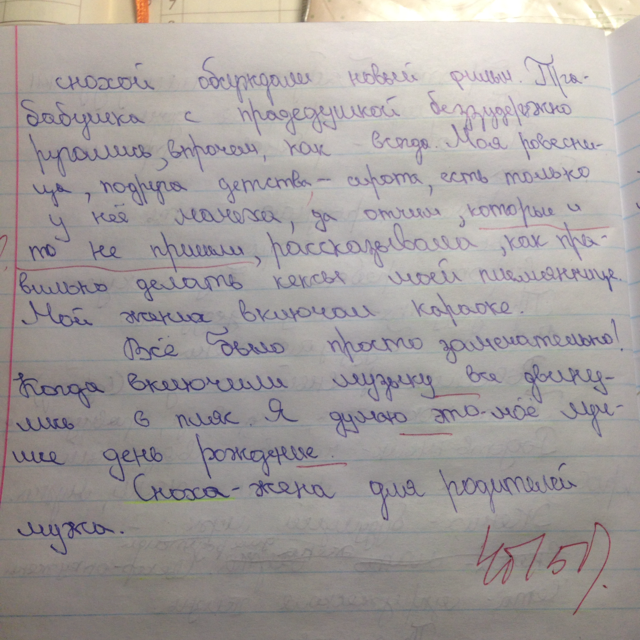 снохой обсуждали новый фильм. Пра-
бабушка с прадедушкой беззудержно
ругались, впрочем, как всегда. Моя ровесни-
ца, подруга детства - сирота, есть только
у неё мачеха, да отчим, которые и
то не пришли, рассказывала, как пра-
вильно делать кексы моей племяннице.
Мой жених включал караоке.
Всё было просто замечательно!
Когда включили музыку все двину-
лись в пляс. Я думаю это-моё луч-
шее день рождение.
Сноха-жена для родителей
мужа.